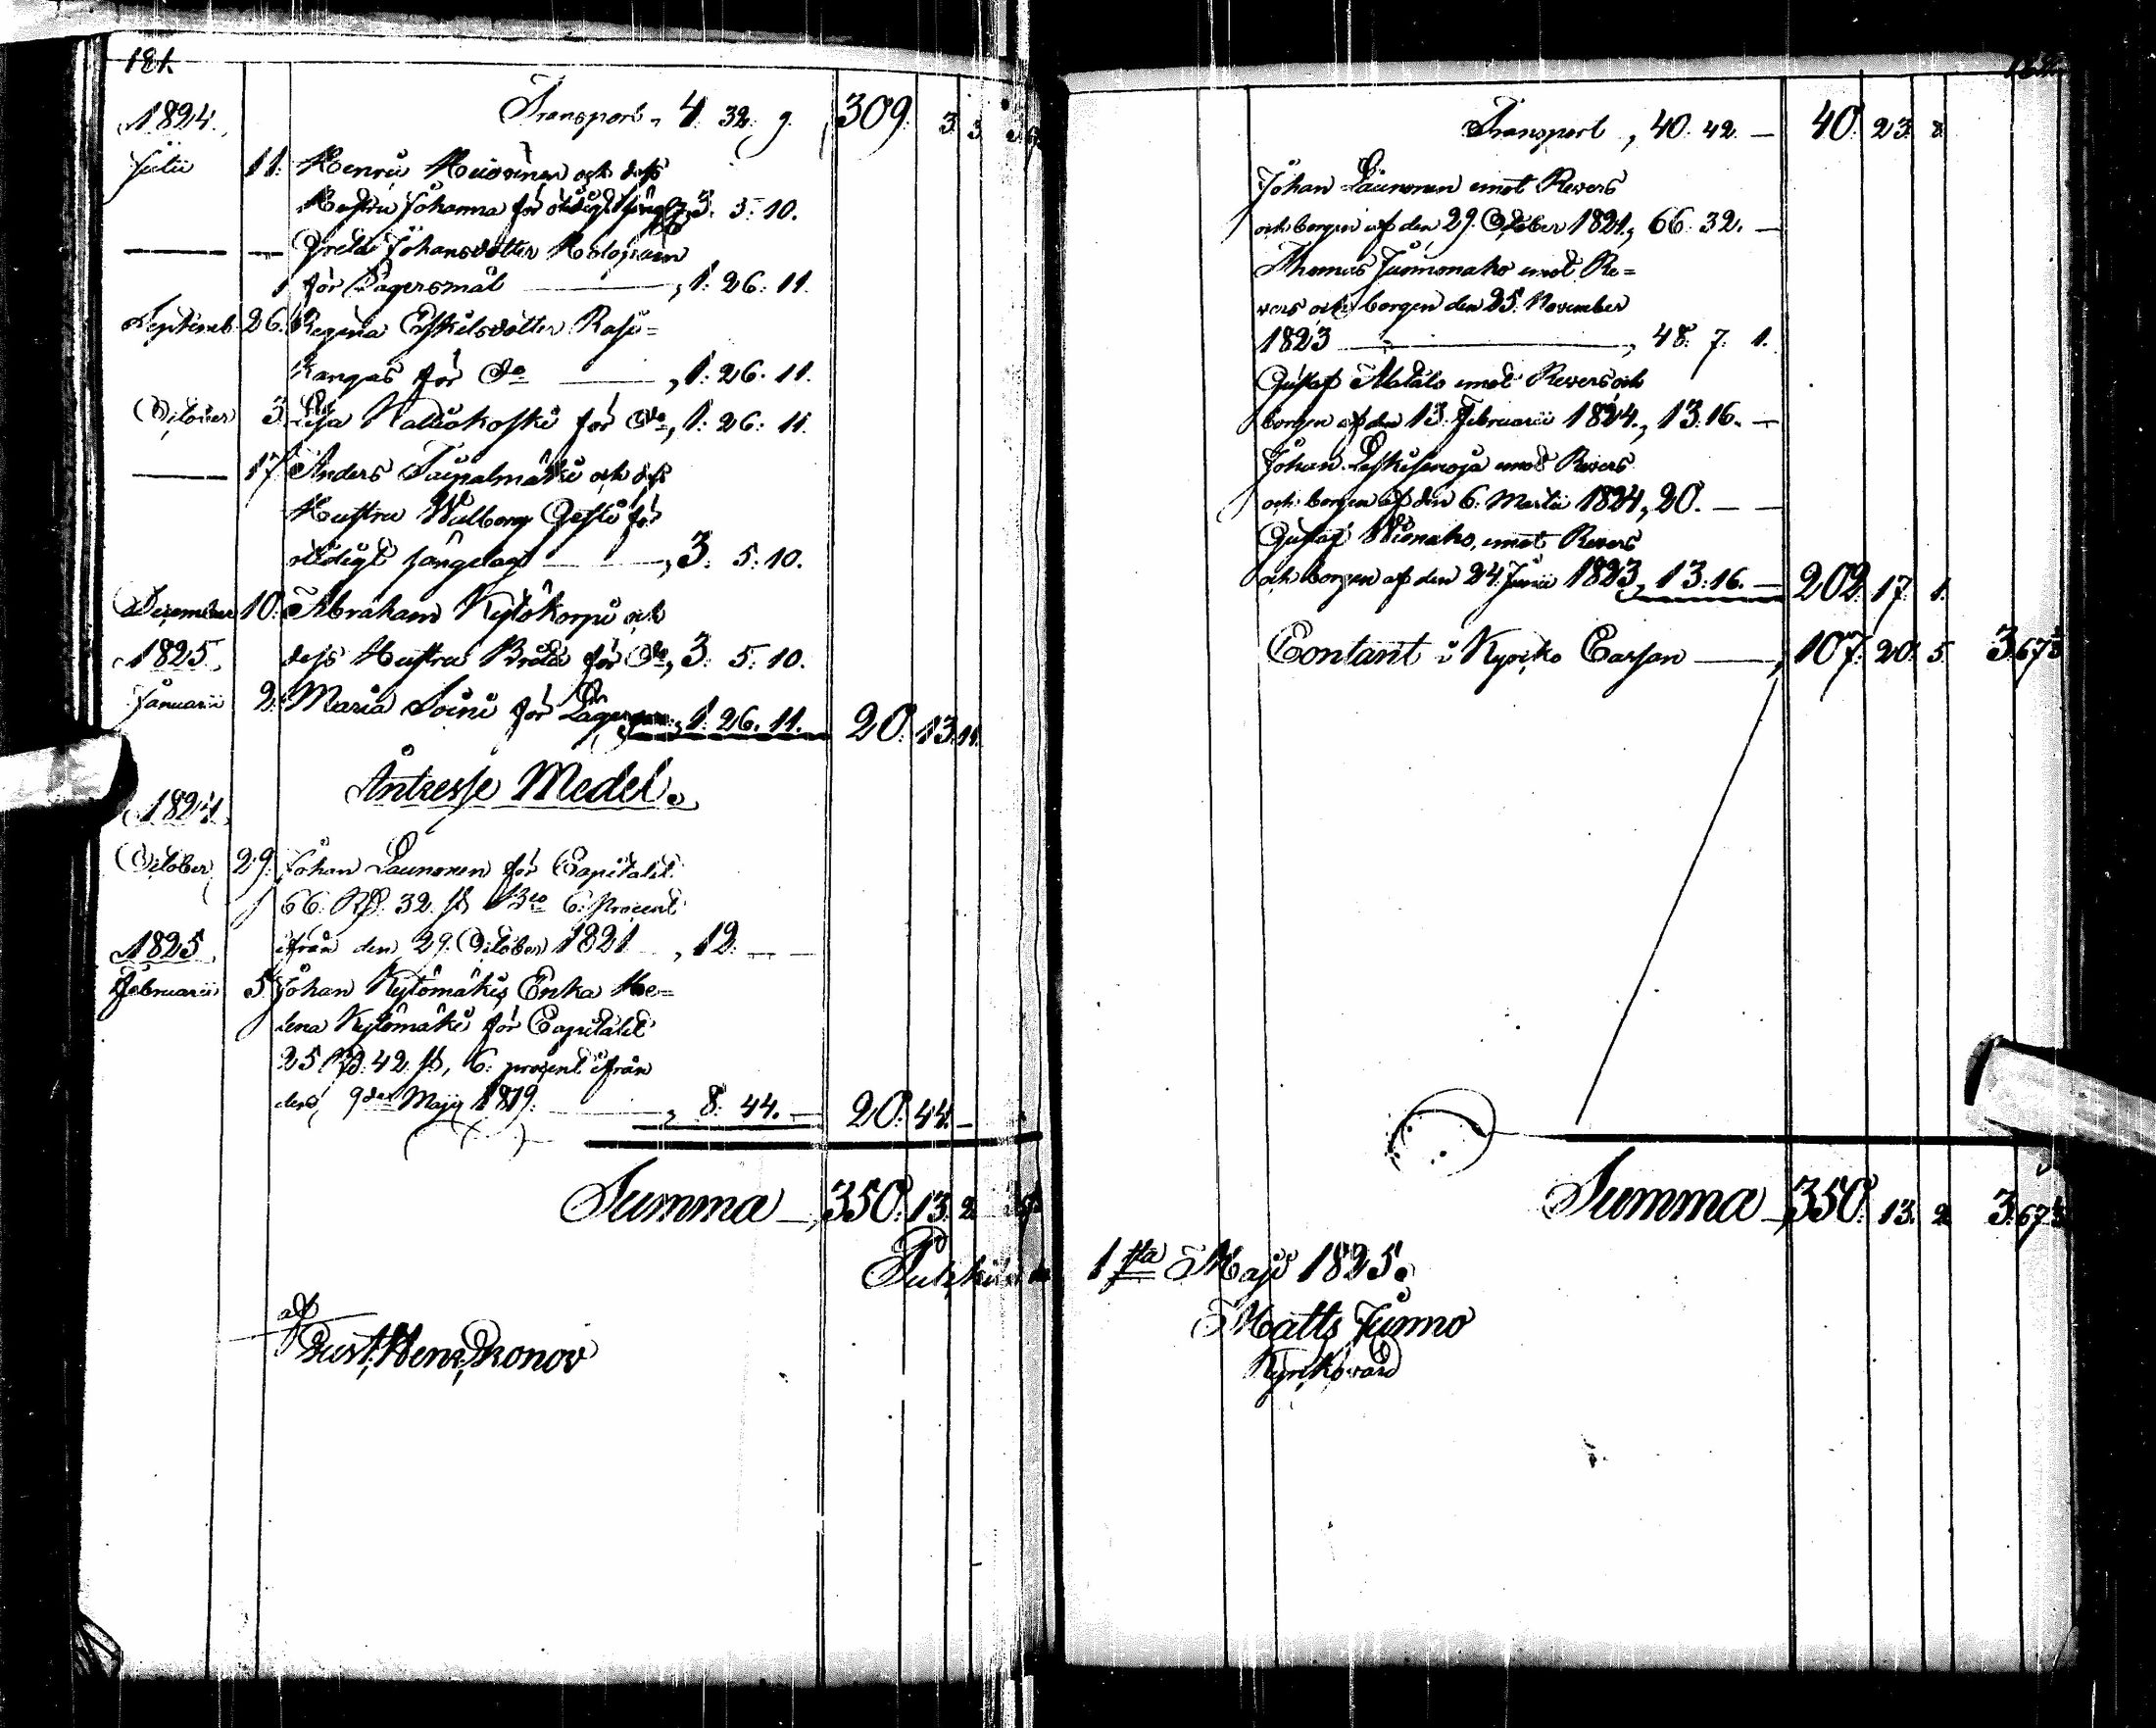 181.
1824. Transport „ 4. 32. 9. 309. 3. 3.
Julii 11. Henric Heisvinen och dess
Hustru Johanna för otidigt sängelag „ 3. 5. 10.
— — Greta Johansdotter
för Lägersmål — „ 1. 26. 11.
Septemb. 26. Regina Eskilsdotter Rasi=
kangas för Do — „ 1. 26. 11.
October 3. Lisa Kalliokoski för Do „ 1. 26. 11.
— 17. Anders Taipalmäki och dess
Hustru Walborg för
otidigt sängelag — „ 3. 5. 10.
December 10. Abraham Kytökorpi och
1825. dess Hustru Brita för Do „ 3. 5. 10.
Januarii 2. Maria Soini för „ 1. 26. 11. 20. 13. 11.
Intresse Medel.
1824.
October 29. Johan Launonen för Capitalet
66. Rd. 32. s. Bco 6. Procent
1825. ifrån den 29. October 1821 „ 12. — —
Februarii 5. Johan Kytömäkis Enka He=
lena Kytömäki för Capitalet
25 Rd. 42. s., 6. procent ifrån
den 9de Maji 1819. — „ 8. 44. — 20. 44. —
Summa —, 350. 13. 2.
Pulkkila
af
Gust. Henr. Kronov
Transport „ 40. 42. — 40. 23. 8.
Johan Launonen emot Revers
och borgen af den 29. October 1821. „ 66. 32. —
Thomas Junnonaho emot Re=
vers och borgen den 25. November
1823 — „ 48. 7. 1.
Gustaf Matalo emot Revers och
borgen af den 13. Februarii 1824. „ 13. 16. —
Johan Leskisenoja emot Revers
och borgen af den 6. Martii 1824 „ 20. — —
Gustaf emot Revers
och borgen af den 24. Junii 1823 „ 13. 16. — 202. 17. 1.
Contant i Kyrko Cassan —, 107. 20. 5. 3. 67½
Summa —, 350. 13. 2. 3. 67½
1sta Maji 1825.
Matts Junno
Kyrkovärd